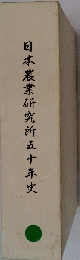 日本農業研究所五十年史